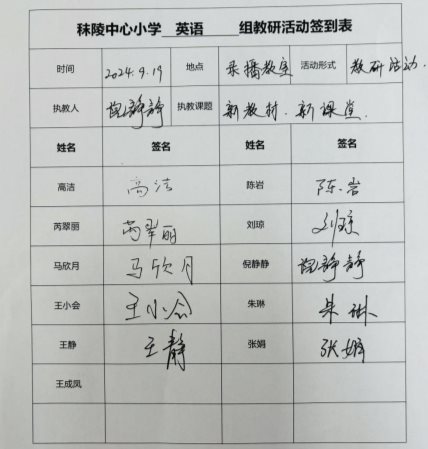 秣陵中心小学 英语 组教研活动签到表
时间 2024.9.19 地点 录播教室 活动形式 教研活动.
执教人 倪静静 执教课题 新教材.新课堂.
姓名 签名 姓名 签名
高洁 高洁 陈岩 陈岩
芮翠丽 芮翠丽 刘琼 刘琼
马欣月 马欣月 倪静静 倪静静
王小会 王小会 朱琳 朱琳
王静 王静 张娟 张娟
王成凤